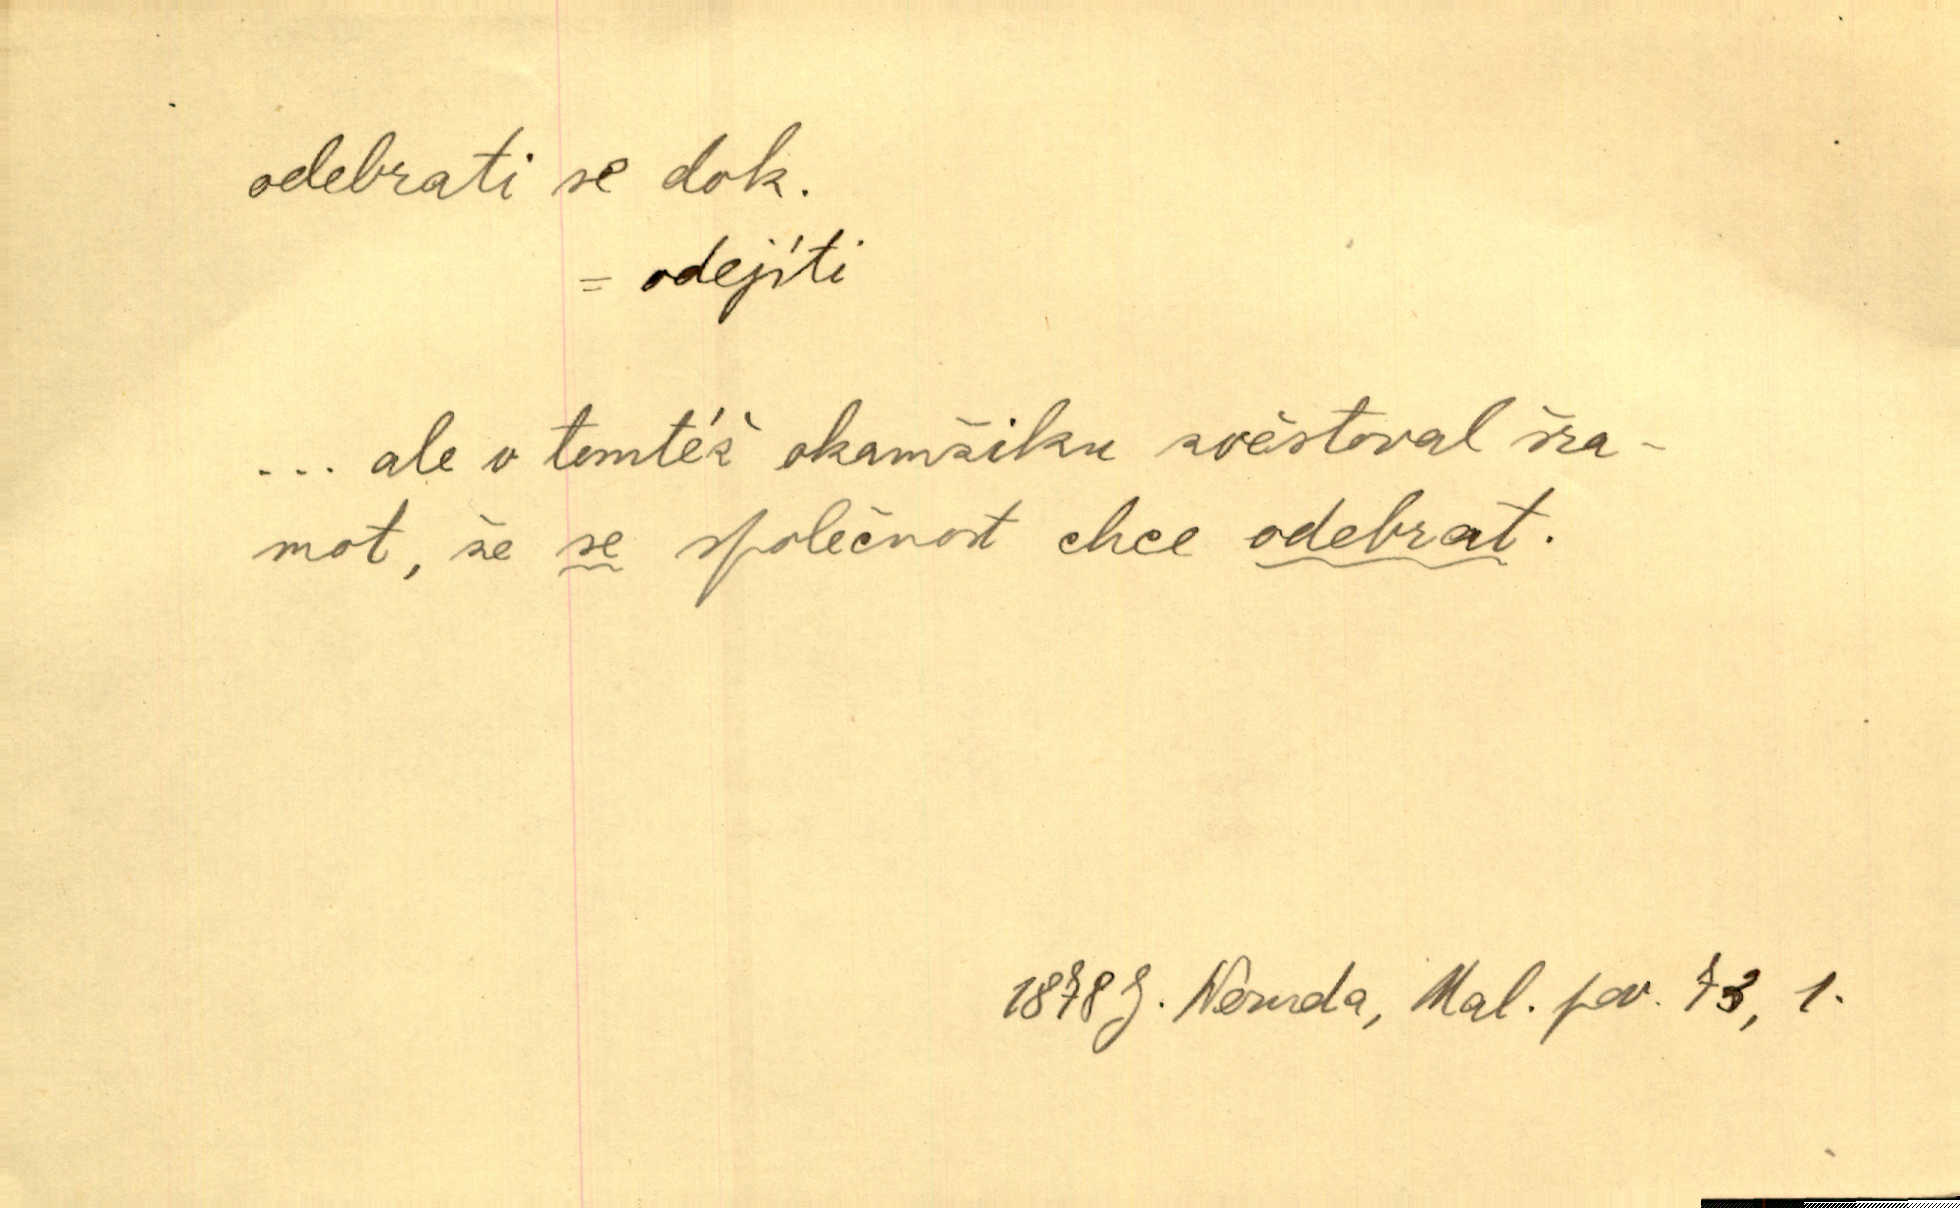 odebrati se dok.
= odejíti
... ale v tomtéž okamžiku zvěstoval šra-
mot, že se společnost chce odebrat.
1878 J. Neruda, Mal. pov. 73, 1.